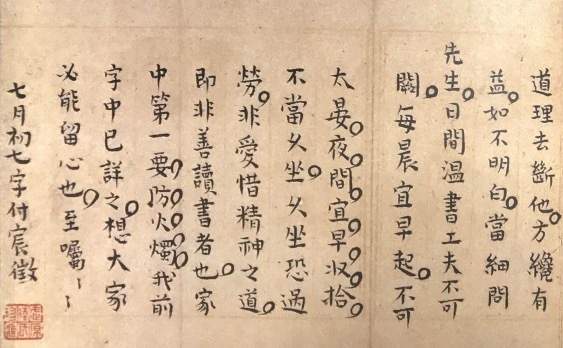 道理去斷他方纔有
益如不明白當細問
先生日間溫書工夫不可
闕每晨宜早起不可
太晏夜間宜早收拾
不當久坐久坐恐過
勞非愛惜精神之道
即非善讀書者也家
中第一要防火燭我前
字中已詳之想大家
必能留心也至囑〻
七月初七字付宸徵